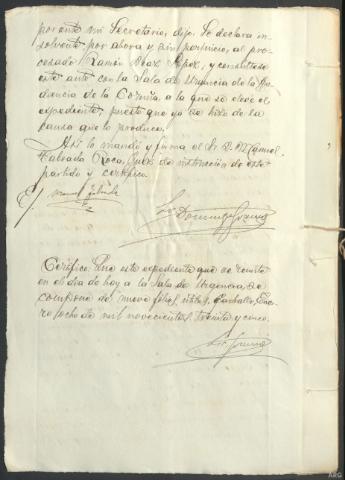 por ante mi Secretario, dijo: Se declara in-
solvente por ahora y sin perjuicio, al pro-
cesado Ramón López, y consúltese
este auto con la Sala de Urgencia de la Au-
diencia de la Coruña, a la que se eleve el
expediente, puesto que ya se hizo de la
causa que lo produce.
Así lo mandó y firma el Sr. D. Manuel
Taboada Roca, Juez de instrucción de este
partido y certifico.
E/ Manuel Taboada
Domingo
Certifico: Que este expediente que se remite
en el día de hoy a la Sala de Urgencia, se
compone de nueve folios útiles. Carballo, Ene-
ro ocho de mil novecientos treinta y cinco.
ARG